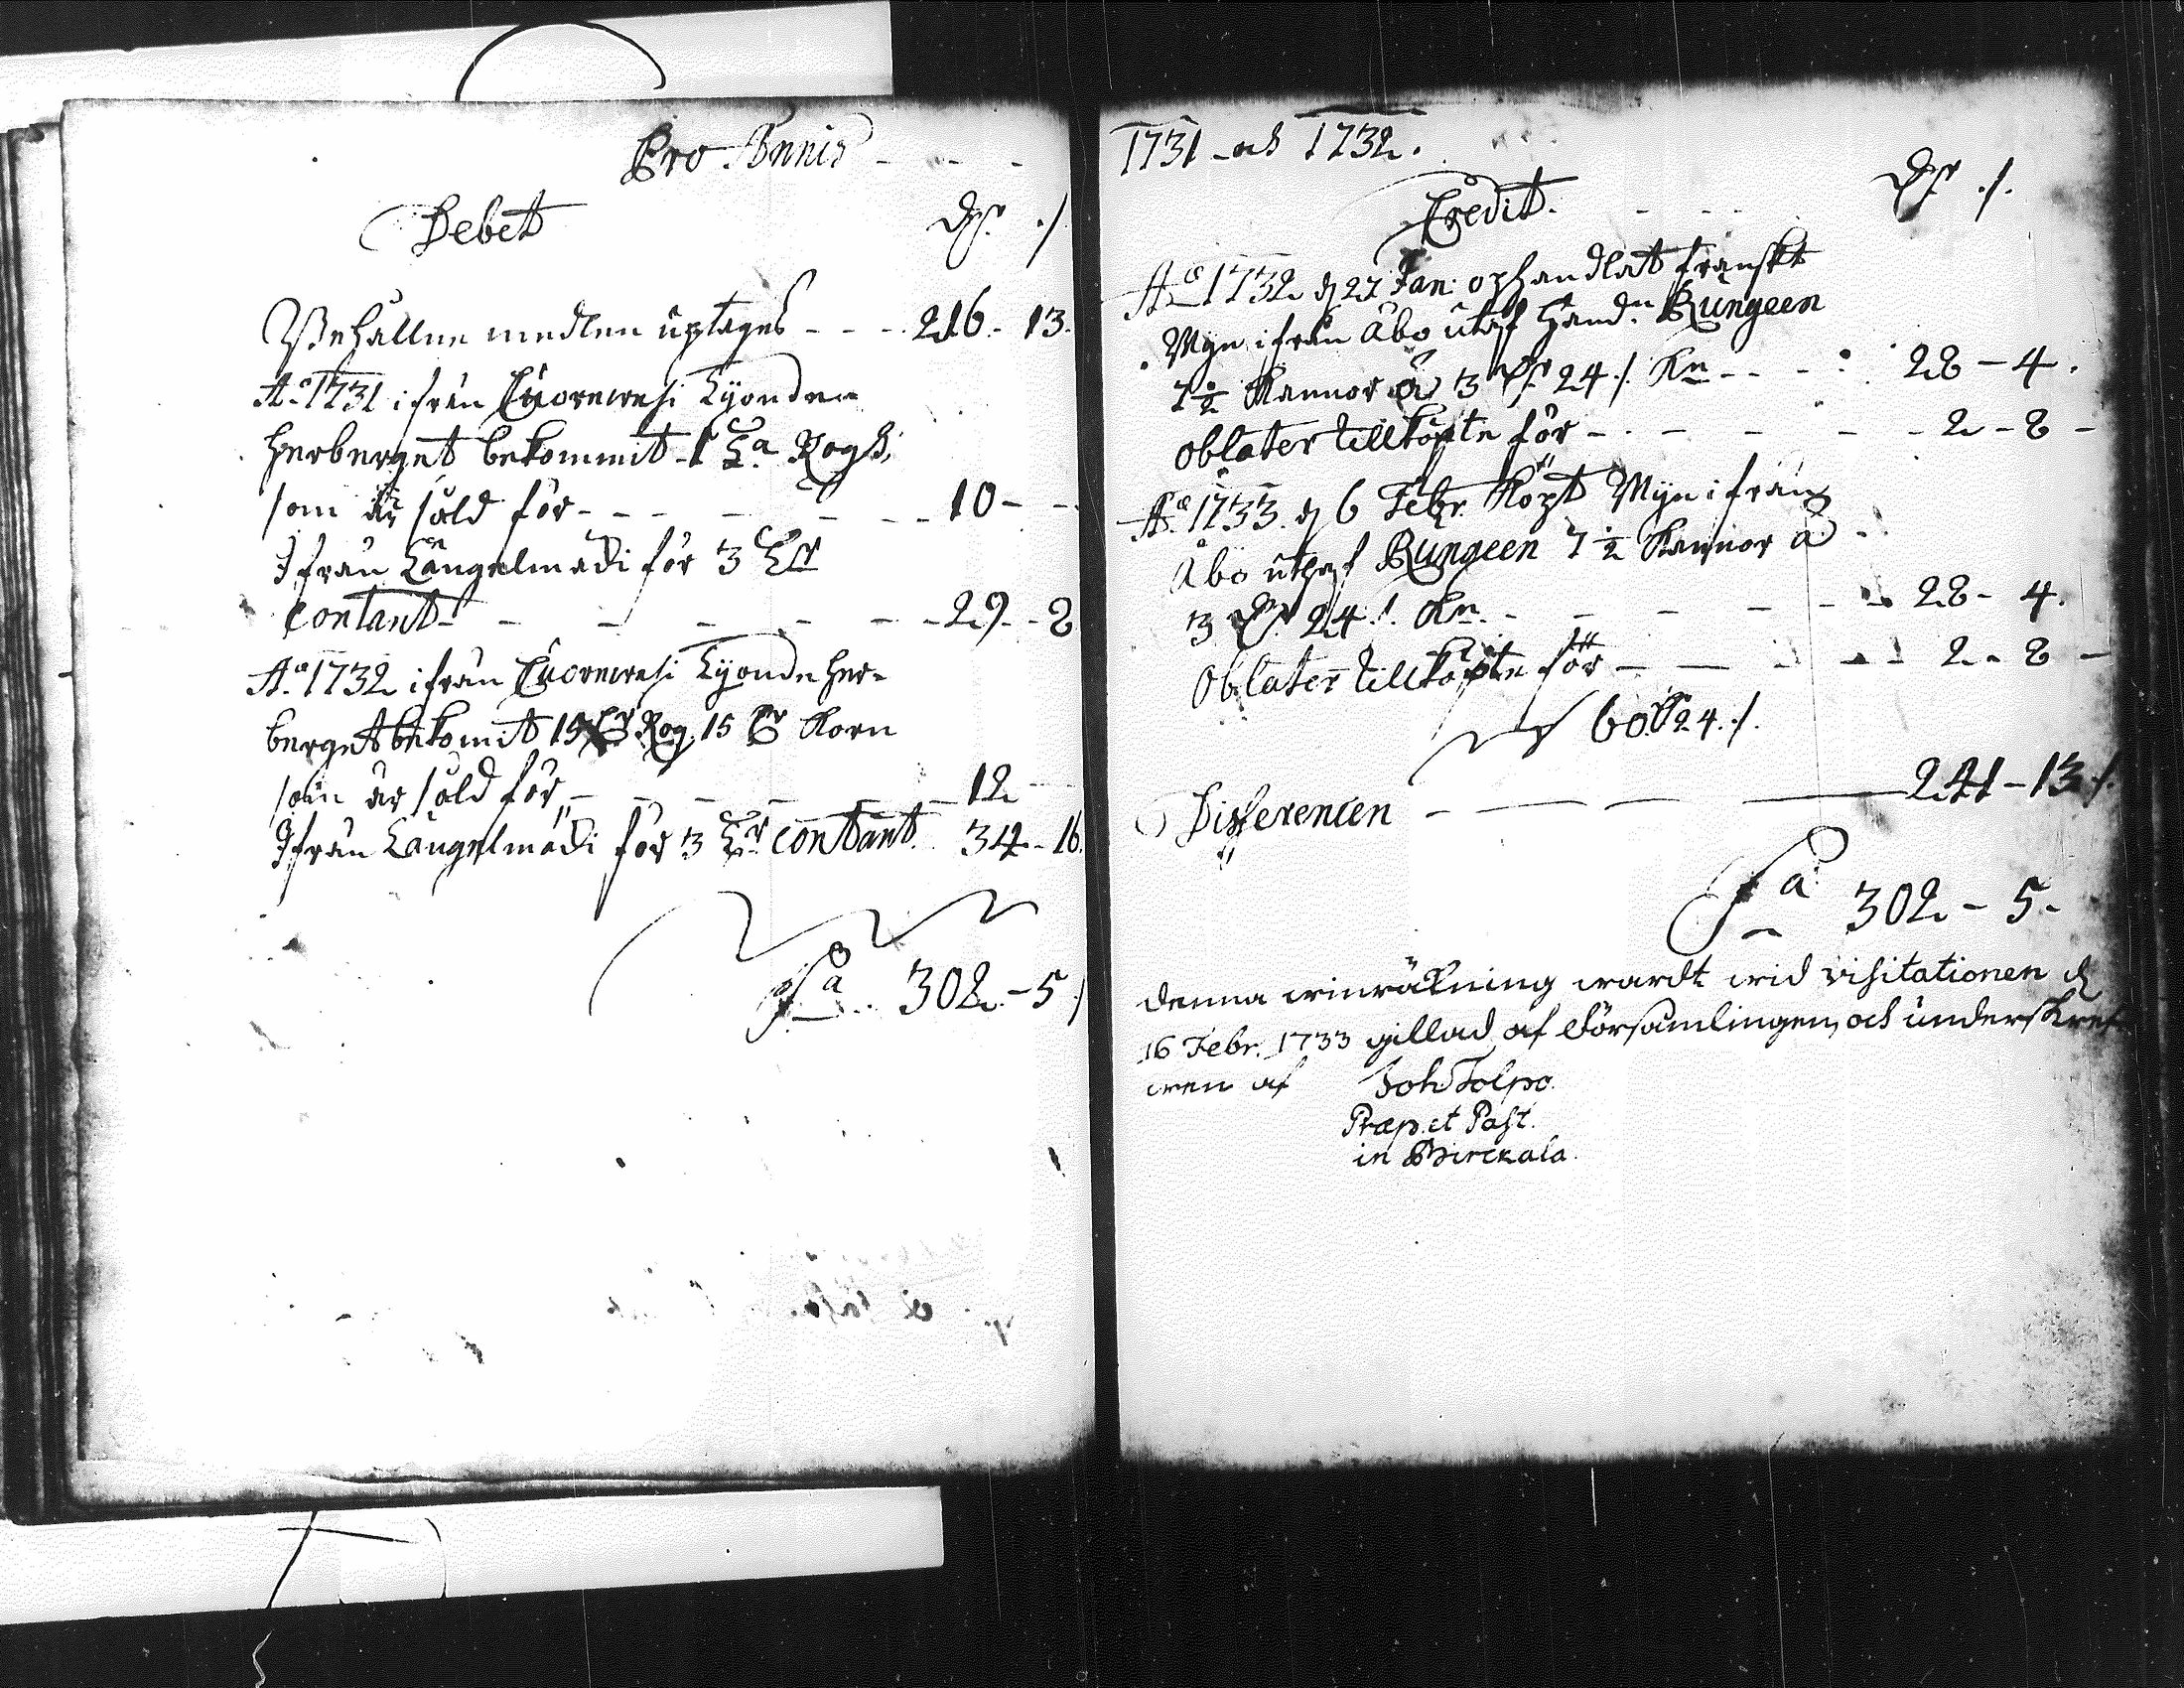 Pro Annis
Debet Dr ./.
Behållne medlen uptages - - - 216 - 13.
Ao 1731 ifrån Kuorewesi Tyonde
herberget bekommit 1 Ta Rogh,
som är såld för - - - - - 10 -
Ifrån Längelmädi för 3 Tr
Contant - - - - - - 29 - 8
Ao 1732 ifrån Kuorewesi Tyonde her-
berget bekomit 15 Rog, 15 Korn
som är såld för - - - - - 12
Ifrån Längelmädi för 3 Tr Contant. 34 - 16.
Sa 302 - 5 ./.
1731 och 1732.
Credit. Dr ./.
Ao 1732 d 27 Jan: ophandlat franskt
Wijn ifrån Åbo utaf Hand.n Bungeen
7 1/2 Kannor à 3 Dr 24 ./. Kn - - - 28 - 4.
Oblater tillköpte för - - - - - 2 - 8 -
Ao 1733 d 6 Febr. Köpt Wijn ifrån
Åbo uthaf Bungeen 7 1/2 Kannor à
3 Dr 24 ./. Kn - - - - - 28 - 4.
Oblater tillköpte för - - - - - 2 - 8 -
60 Dr 24 ./.
Differencen - - - - 241 - 13 ./.
Sa 302 - 5 -
denna winräkning wardt wid visitationen d
16 Febr. 1733 gillad af Församlingen, och underskref-
wen af Joh Tolpo.
Præp. et Past.
in Birckala.